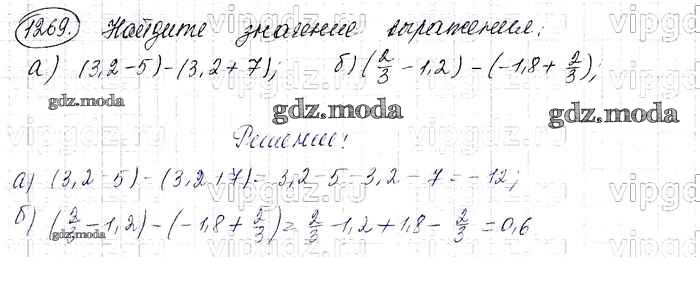 1269. Найдите значение выражения:
а) (3,2-5)-(3,2+7); б) (2/3 -1,2)-(-1,8+ 2/3);
gdz.moda
gdz.moda
gdz.moda
Решение!
а) (3,2-5)-(3,2+7)=3,2-5-3,2-7=-12;
б) (2/3 -1,2)-(-1,8+ 2/3)= 2/3 -1,2+1,8- 2/3 =0,6
gdz.moda
vipgdz.ru